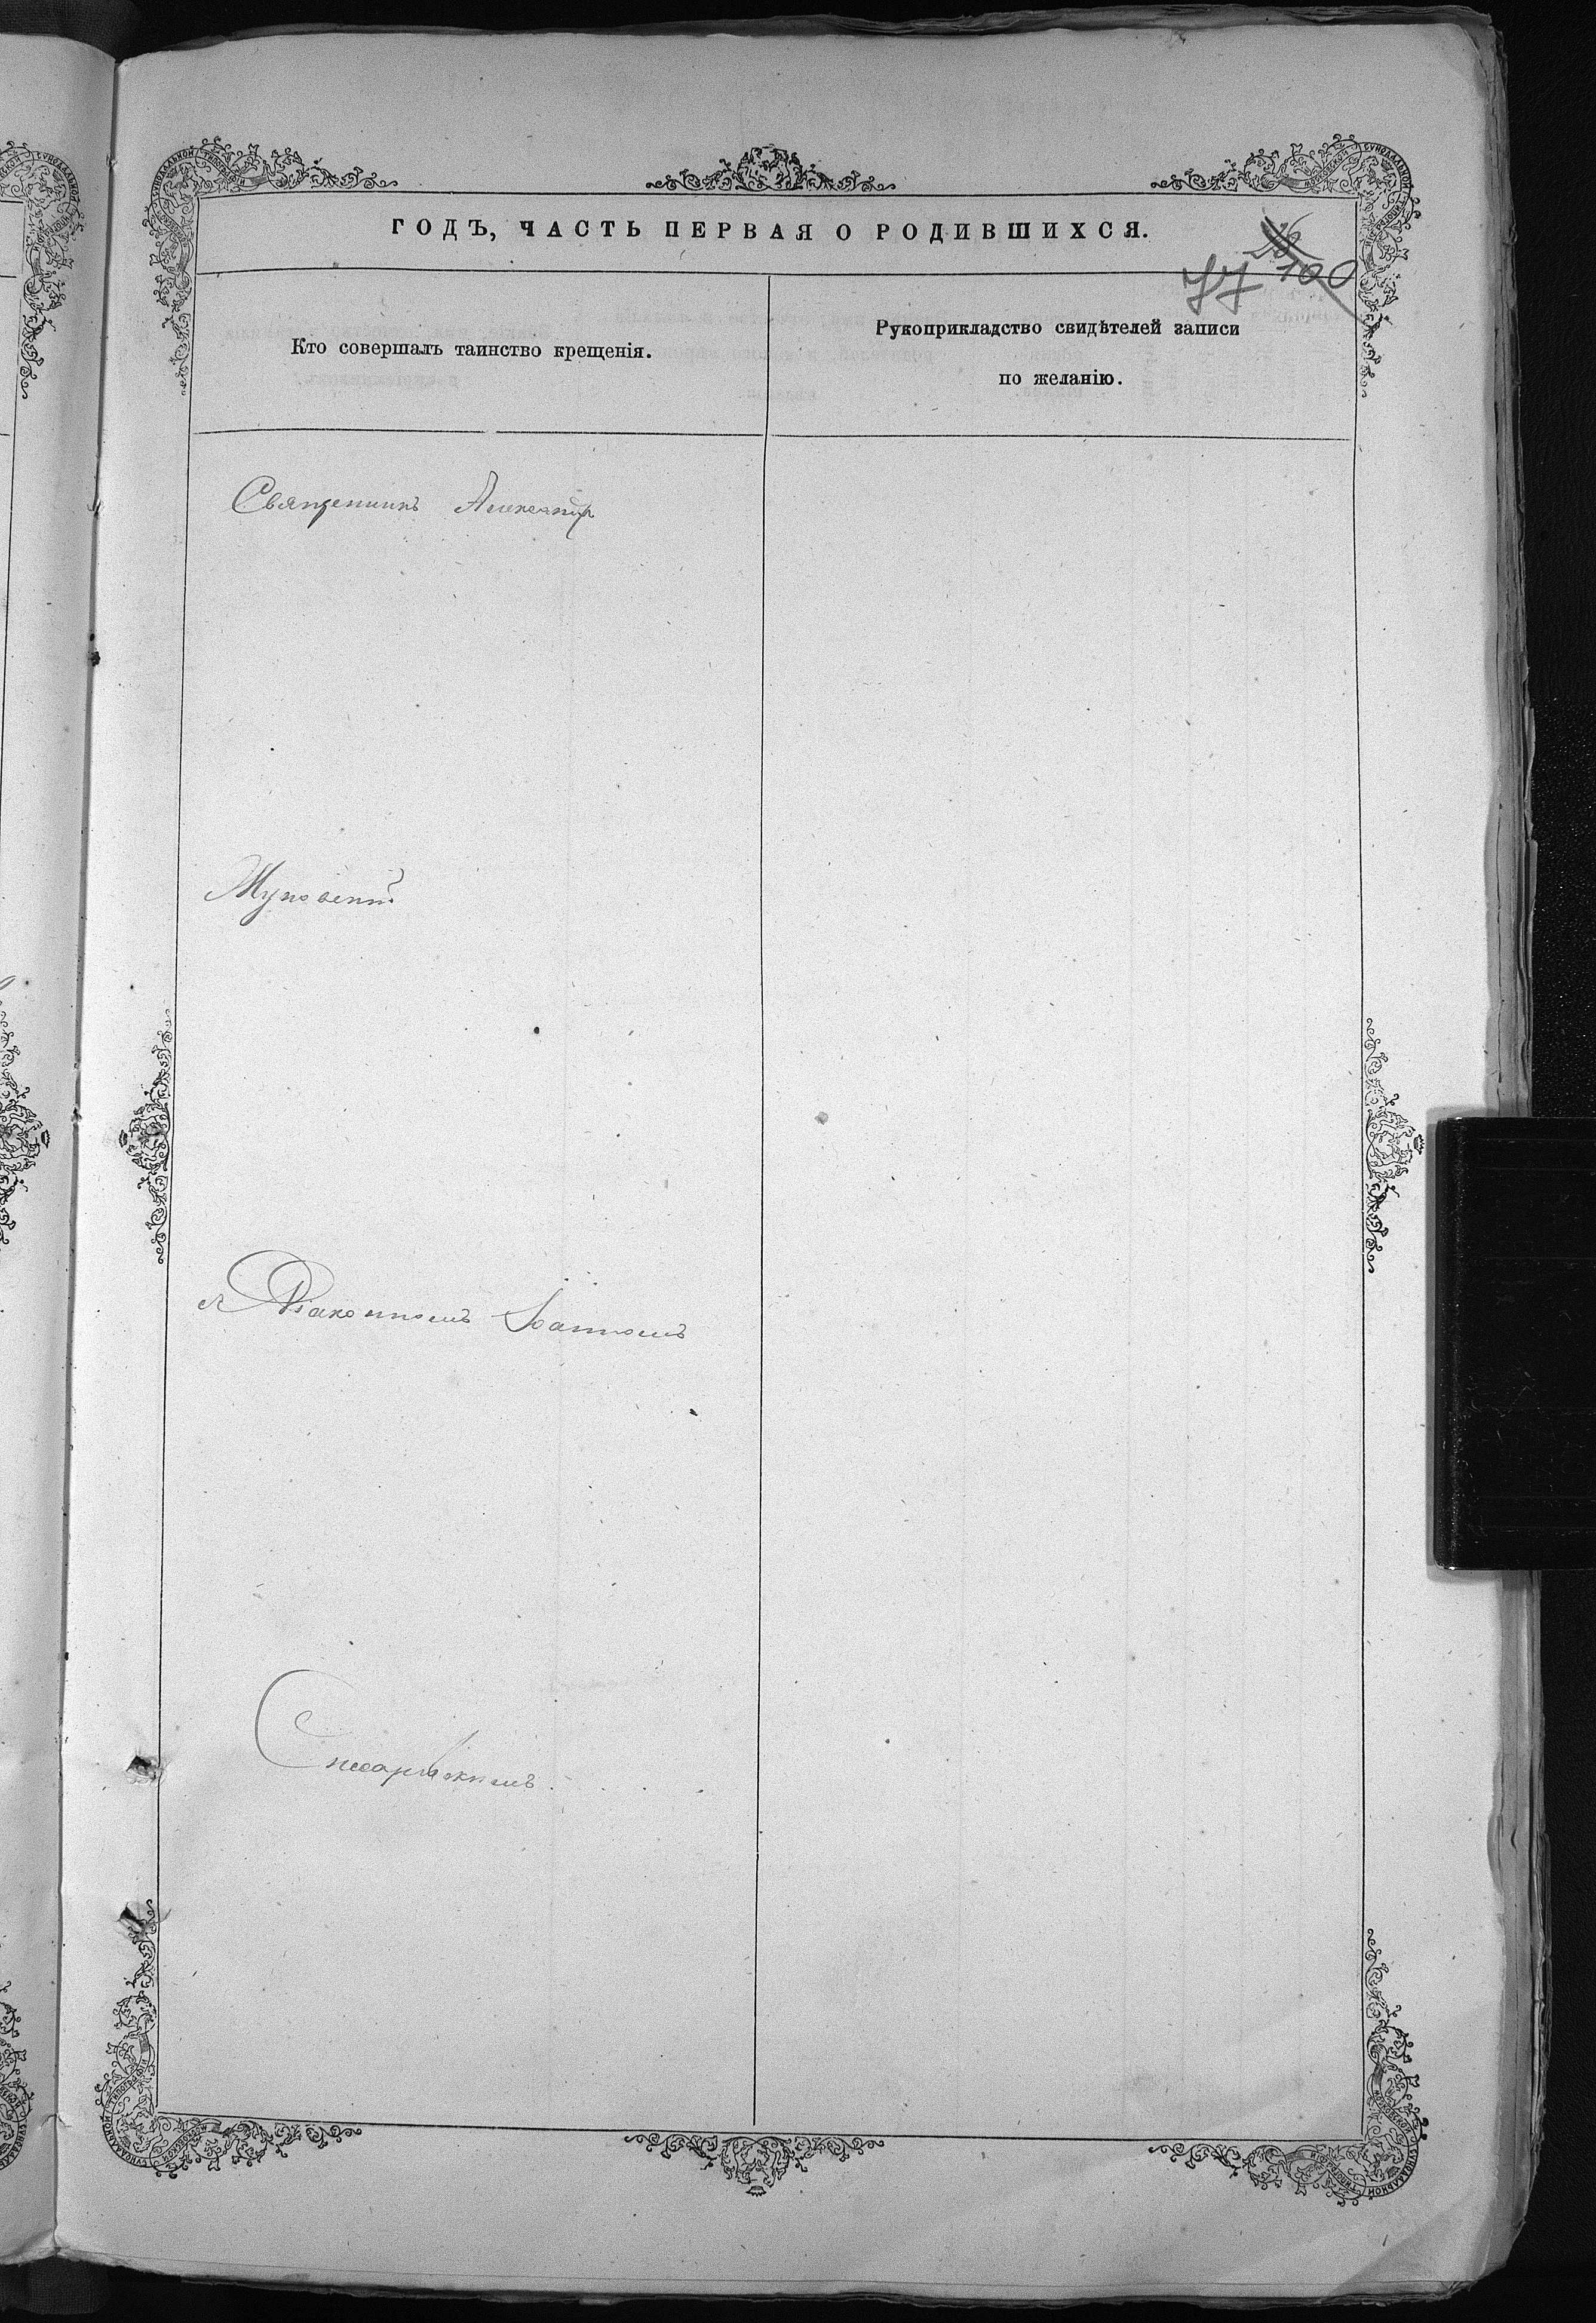 ГОДЪ, ЧАСТЬ ПЕРВАЯ О РОДИВШИХСЯ.
77 100
Кто совершалъ таинство крещенія.
Рукоприкладство свидѣтелей записи
по желанію.
Священникъ Александр
Жуковскій
Діакономъ Іоанномъ